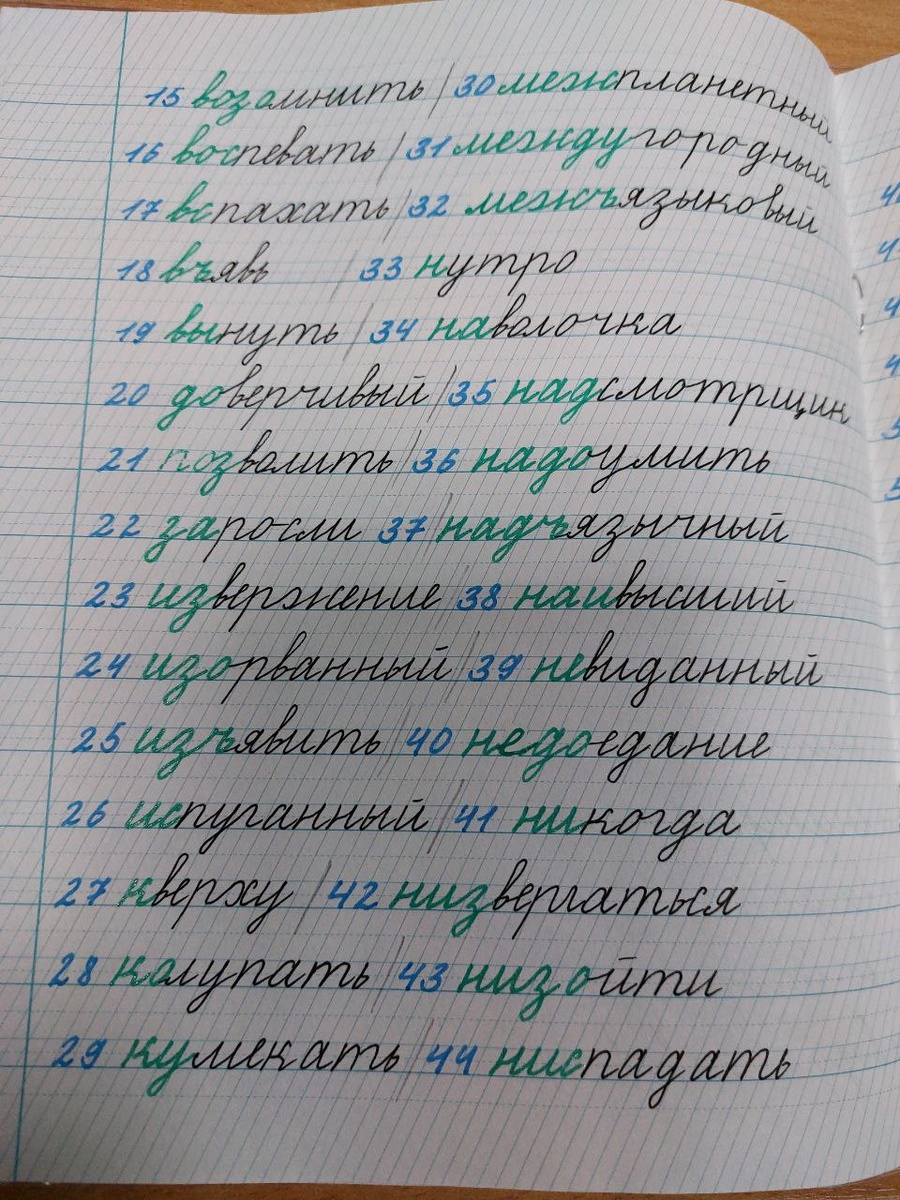 15 возомнить / 30 межпланетный
16 воспевать / 31 междугородный
17 вспахать / 32 межъязыковый
18 въявь / 33 нутро
19 вынуть / 34 наволочка
20 доверчивый / 35 надсмотрщик
21 позволить / 36 надоумить
22 заросли 37 надъязычный
23 извержение / 38 наивысший
24 изорванный / 39 невиданный
25 изъявить / 40 недоедание
26 испуганный / 41 никогда
27 кверху / 42 низвергаться
28 колупать / 43 низойти
29 кумекать / 44 ниспадать